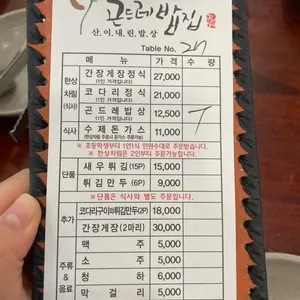 곤드레밥집
산,이내린,밥,상
Table No. 21
차 림 표 가 격 수 량
한상차림(식사)
간장게장정식 (1인 가격입니다) 27,000
코다리정식 (1인 가격입니다) 21,000
곤드레밥상 (1인 가격입니다) 12,500 T
식사 수제돈가스 11,000
※ 초등학생부터 1인1식 인원수대로 주문받습니다.
※ 한상차림은 2인부터 주문 가능합니다.
단품 새우튀김(15P) 15,000
튀김만두(6P) 9,000
※단품은 식사와 별도 주문입니다
추가 코다리구이와튀김만두(2P) 18,000
간장게장(2마리) 30,000
주류&음료
맥 주 5,000
소 주 5,000
청 하 6,000
막 걸 리 5,000